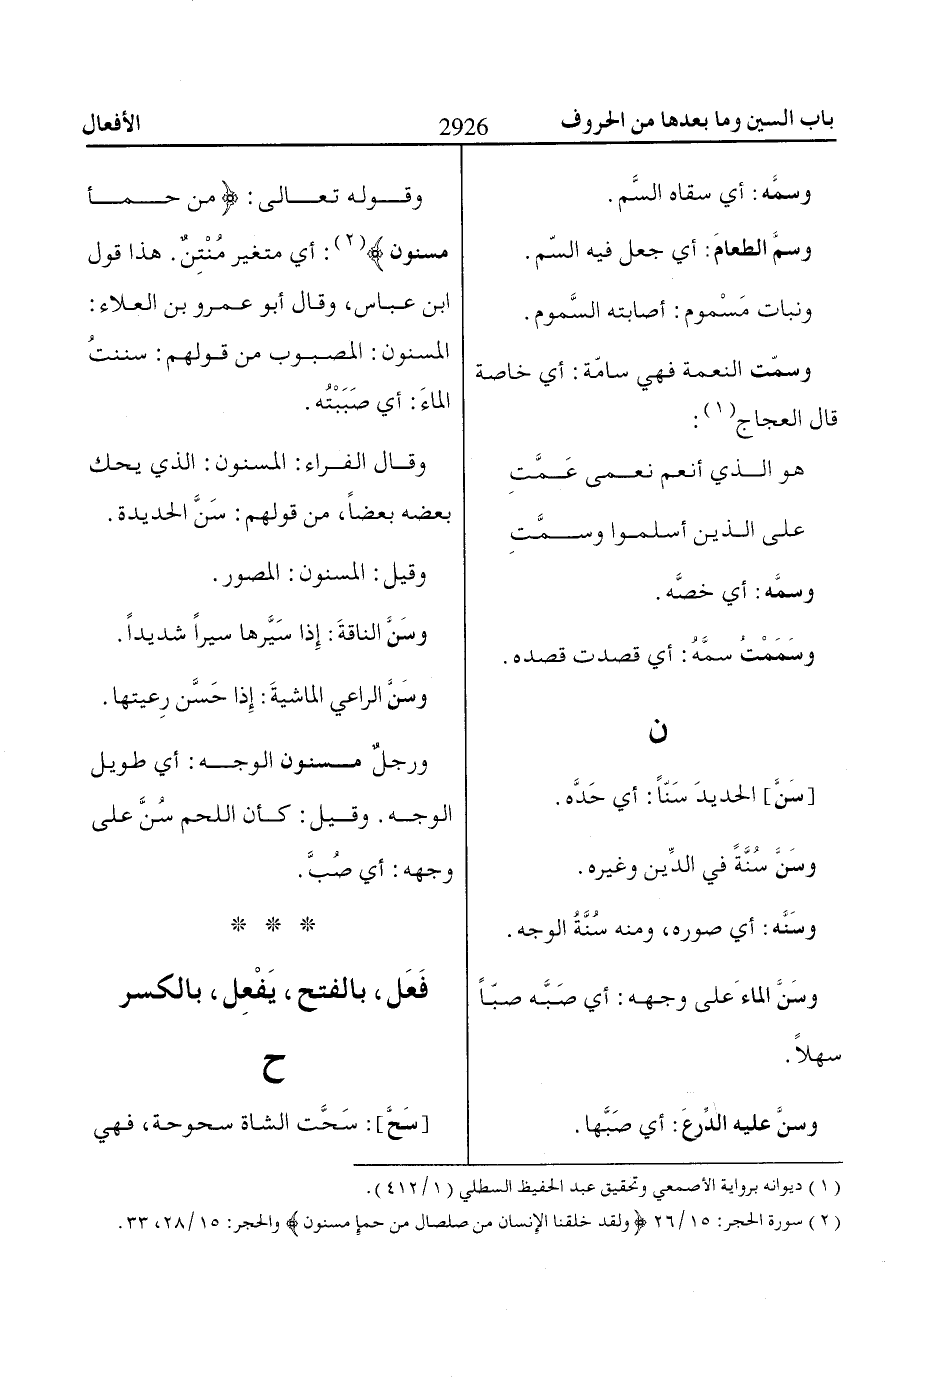 باب السين وما بعدها من الحروف 2926 الأفعال
وسمَّه: أي سقاه السَّم.
وسمَّ الطعامَ: أي جعل فيه السّم.
ونبات مَسْموم: أصابته السَّموم.
وسمّت النعمة فهي سامّة: أي خاصة
قال العجاج(١):
هو الذي أنعم نعمى عَمَّتِ
على الذين أسلموا وسمَّتِ
وسمَّه: أي خصَّه.
وسَمَمْتُ سمَّهُ: أي قصدت قصده.
ن
[سَنَّ] الحديدَ سَنّاً: أي حَدَّه.
وسَنَّ سُنَّةً في الدِّين وغيره.
وسَنَّه: أي صوره، ومنه سُنَّةُ الوجه.
وسَنَّ الماءَ على وجهه: أي صَبَّه صبّاً
سهلاً.
وسنَّ عليه الدِّرعَ: أي صَبَّها.
وقوله تعالى: ﴿من حمأ
مسنون﴾(٢): أي متغير مُنْتِنٌ. هذا قول
ابن عباس، وقال أبو عمرو بن العلاء:
المسنون: المصبوب من قولهم: سننتُ
الماءَ: أي صَبَبْتُه.
وقال الفراء: المسنون: الذي يحك
بعضه بعضاً، من قولهم: سَنَّ الحديدة.
وقيل: المسنون: المصور.
وسَنَّ الناقةَ: إذا سَيَّرها سيراً شديداً.
وسَنَّ الراعي الماشيةَ: إذا حَسَّن رِعيتها.
ورجلٌ مسنون الوجه: أي طويل
الوجه. وقيل: كأن اللحم سُنَّ على
وجهه: أي صُبَّ.
* * *
فَعَل، بالفتح، يَفْعِل، بالكسر
ح
[سَحَّ]: سَحَّت الشاة سحوحة، فهي
(١) ديوانه برواية الأصمعي وتحقيق عبد الحفيظ السطلي (١/ ٤١٢).
(٢) سورة الحجر: ١٥/ ٢٦ ﴿ولقد خلقنا الإنسان من صلصال من حمإ مسنون﴾ والحجر: ١٥/ ٢٨، ٣٣.